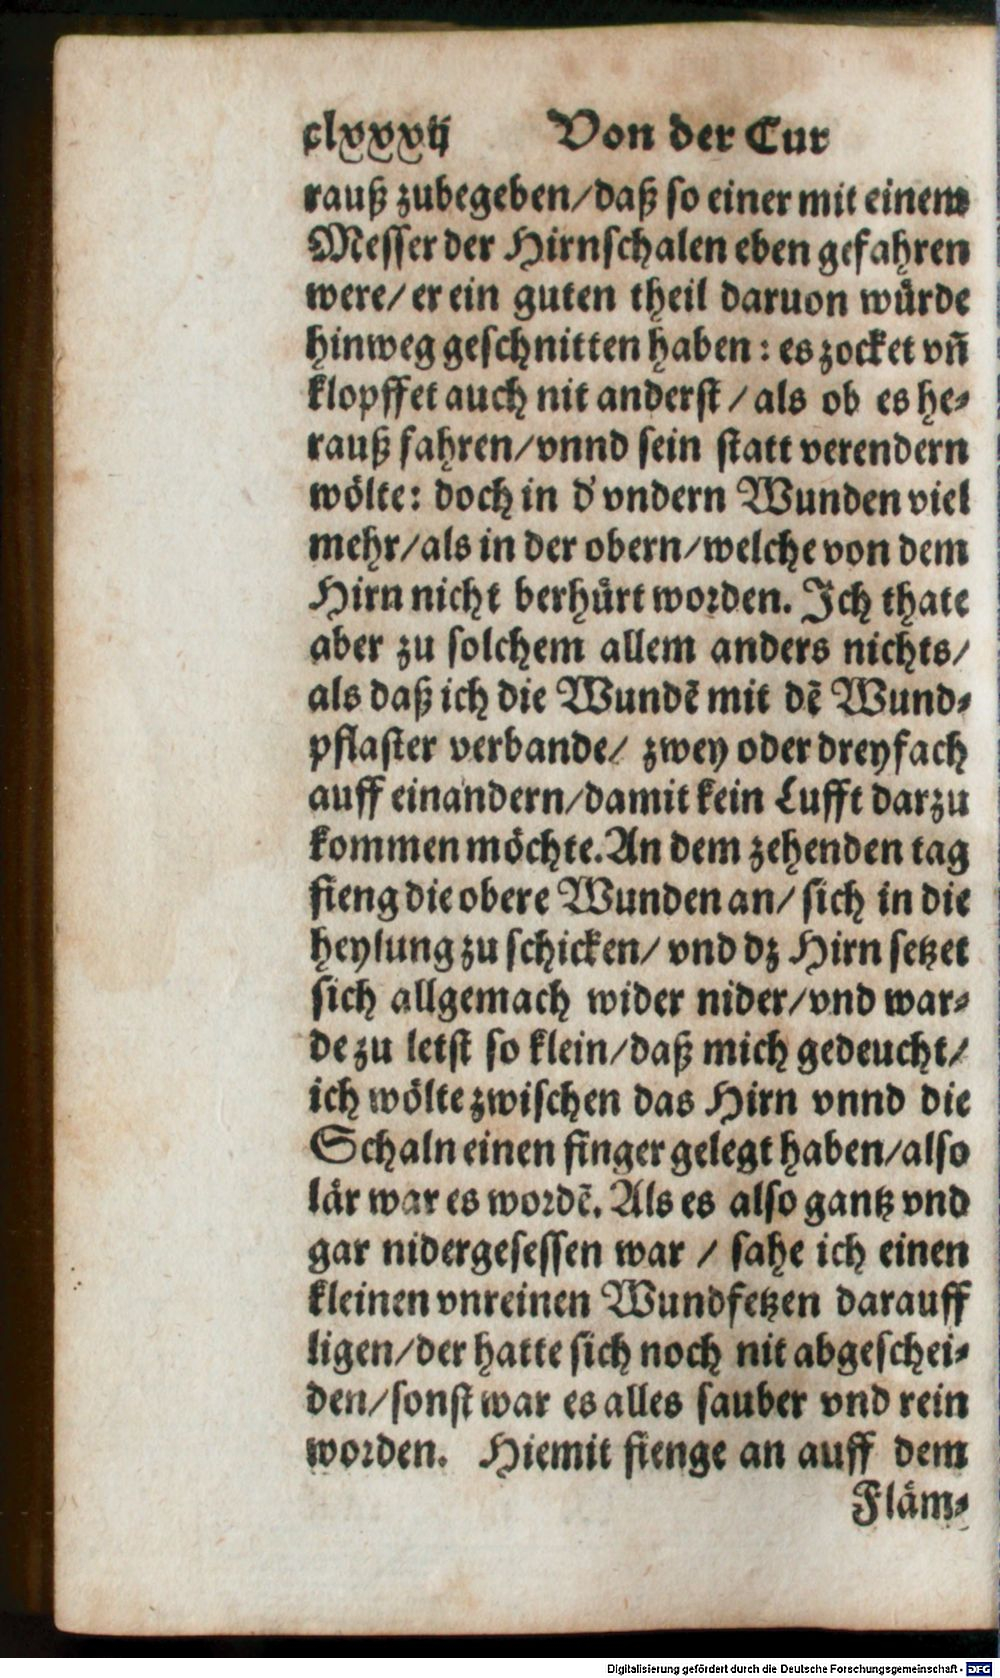 clxxxij Von der Cur
rauß zubegeben/daß so einer mit einem
Messer der Hirnschalen eben gefahren
were/ er ein guten theil daruon wuͤrde
hinweg geschnitten haben: es zocket vñ
klopffet auch nit anderst / als ob es he-
rauß fahren/vnnd sein statt verendern
woͤlte: doch in d' vndern Wunden viel
mehr/als in der obern/welche von dem
Hirn nicht berhuͤrt worden. Ich thate
aber zu solchem allem anders nichts/
als daß ich die Wundẽ mit dẽ Wund-
pflaster verbande/ zwey oder dreyfach
auff einandern/damit kein Lufft darzu
kommen moͤchte. An dem zehenden tag
fieng die obere Wunden an/ sich in die
heylung zu schicken/ vnd dz Hirn setzet
sich allgemach wider nider/vnd war-
de zu letst so klein/daß mich gedeucht/
ich woͤlte zwischen das Hirn vnnd die
Schaln einen finger gelegt haben/also
laͤr war es wordẽ. Als es also gantz vnd
gar nidergesessen war / sahe ich einen
kleinen vnreinen Wundfetzen darauff
ligen/der hatte sich noch nit abgeschei-
den/sonst war es alles sauber vnd rein
worden. Hiemit fienge an auff dem
Flaͤm-
Digitalisierung gefördert durch die Deutsche Forschungsgemeinschaft - DFG